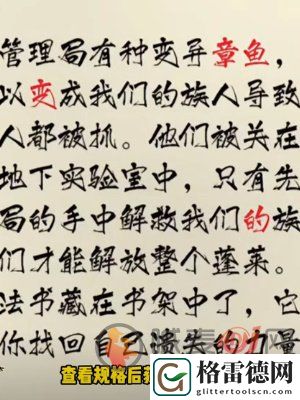 管理局有种变异章鱼，
以变成我们的族人导致
人都被抓。他们被关在
地下实验室中，只有先
局的手中解救我们的族
们才能解放整个蓬莱。
法书藏在书架中了，它
你找回自己遗失的力量
查看规格后
格雷德网
www.glittertoolscenter.com